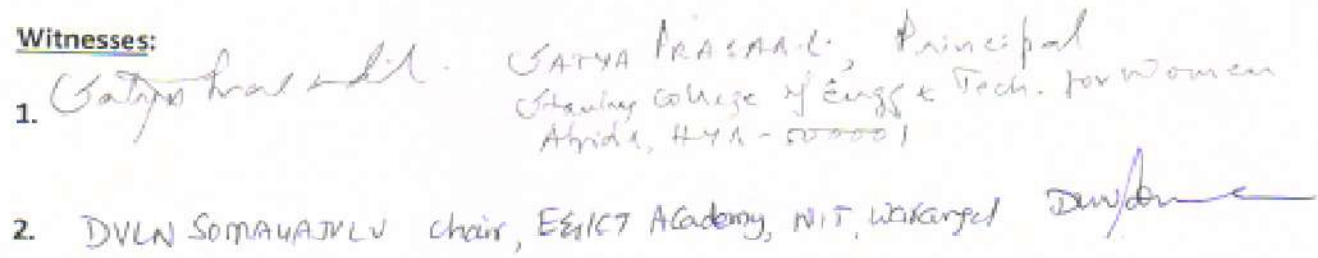 Witnesses:
1. Satya Prasad SATYA PRASAD L., Principal
Stanley College of Engg & Tech. for Women
Abids, HYD - 500001
2. DVLN SOMAYAJULU Chair, E&ICT Academy, NIT, Warangal